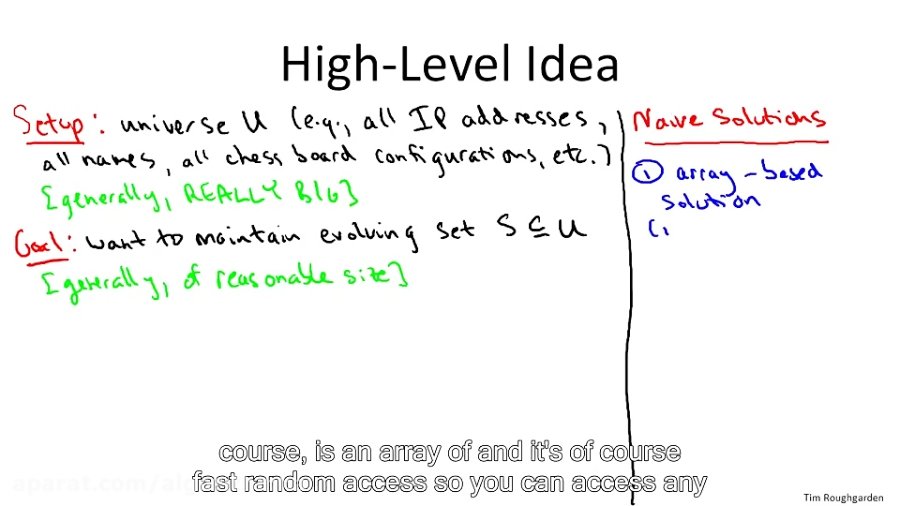 High-Level Idea
Setup: universe U (e.g., all IP addresses,
all names, all chess board configurations, etc.)
[generally, REALLY BIG]
Goal: want to maintain evolving set S ⊆ U
[generally, of reasonable size]
Naive Solutions
① array-based
solution
(
course, is an array of and it's of course
fast random access so you can access any
aparat.com/al
Tim Roughgarden